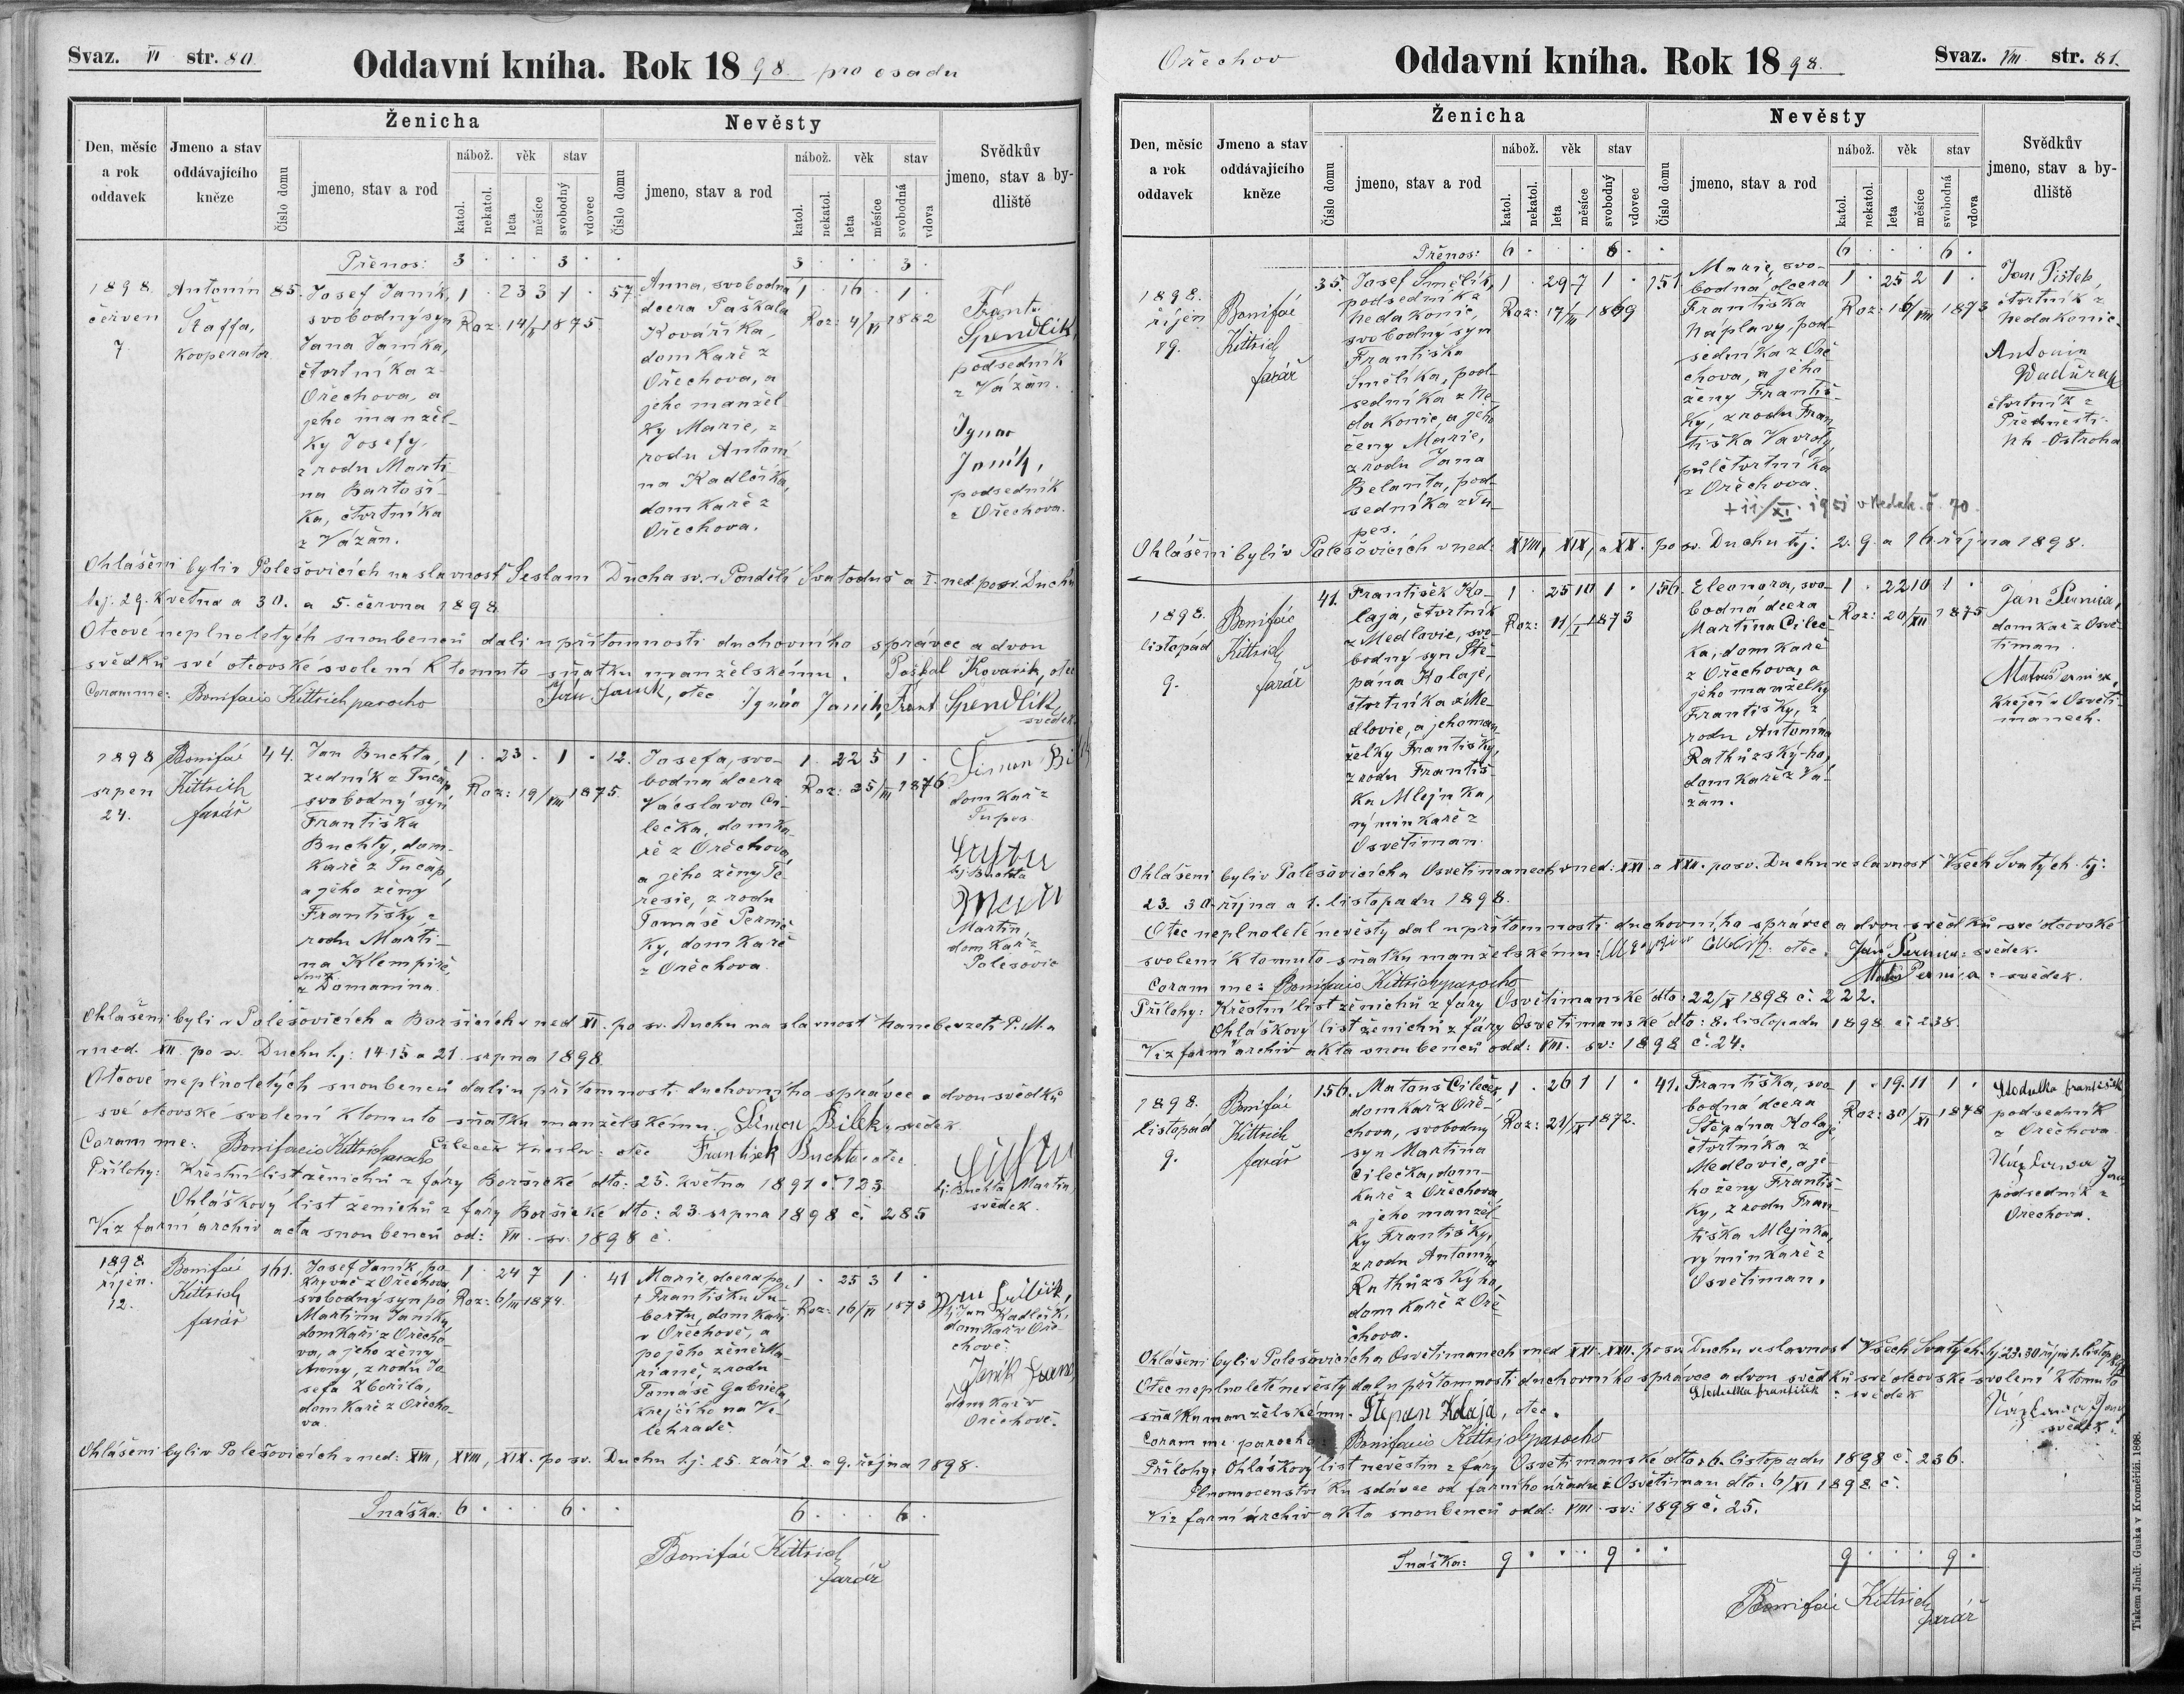 Svaz. VI str. 80
Oddavní kniha. Rok 1898. pro osadu
Den, měsíc a rok oddavek
Jmeno a stav oddávajícího kněze
Ženicha
Číslo domu
jmeno, stav a rod
nábož.
katol.
nekatol.
věk
leta
měsíce
stav
svobodný
vdovec
Nevěsty
Číslo domu
jmeno, stav a rod
nábož.
katol.
nekatol.
věk
leta
měsíce
stav
svobodná
vdova
Svědkův jmeno, stav a bydliště
Přenos: 3 . . . 3 . . 3 . . . 3 .
1898.
červen
7.
Antonín
Staffa,
kooperator
85.
Josef Janík,
svobodný syn
Jana Janíka,
čtvrtníka z
Ořechova, a
jeho manžel-
ky Josefy,
z rodu Marti-
na Bartoší-
ka, čtvrtníka
z Vážan.
1 . 23 3 1 .
Roz: 14/II 1875
57.
Anna, svobodná
dcera Paškala
Kováříka,
domkaře z
Ořechova, a
jeho manžel-
ky Marie, z
rodu Antoní-
na Kadlčíka,
domkaře z
Ořechova.
1 . 16 . 1 .
Roz: 4/VI 1882
Frant.
Spendlík,
podsedník
z Vážan.
Ignac
Janík,
podsedník
z Ořechova.
Ohlášeni byli v Polešovicích na slavnost Seslání Ducha sv. v Pondělí Svatoduš. a I. ned. po sv. Duchu
t.j. 29. května a 30. a 5. června 1898.
Otcové neplnoletých snoubenců dali u přítomnosti duchovního správce a dvou
svědků své otcovské svolení k tomuto sňatku manželskému. Paškal Kovařík, otec
Coram me: Bonifacio Kittrich parocho Jan Janík, otec Ignác Janík, Frant Spendlík,
svědek
1898
srpen
24.
Bonifác
Kittrich
farář
44.
Jan Buchta,
zedník z Tučap
svobodný syn
Františka
Buchty, dom-
kaře z Tučap,
a jeho ženy
Františky z
rodu Marti-
na Klempíře,
z Domanína.
1 . 23 . 1 .
Roz: 19/VIII 1875.
12.
Josefa, svo-
bodná dcera
Václava Ci-
lečka, domka-
ře z Ořechova,
a jeho ženy Te-
resie, z rodu
Tomáše Pernič-
ky, domkaře
z Ořechova.
1 . 22 5 1 .
Roz: 25/III 1876
Šimon Bí
domkař z
Tupes
tj. Buchta
Martin,
domkař z
Polešovic
Ohlášeni byli v Polešovicích a Boršicích v ned. XI. po sv. Duchu na slavnost Nanebevzetí P. M. a
v ned. XII. po sv. Duchu t.j: 14. 15 a 21. srpna 1898.
Otcové neplnoletých snoubenců dali u přítomnosti duchovního správce a dvou svědků
své otcovské svolení k tomuto sňatku manželskému. Šimon Bílek, svědek
Coram me: Bonifacio Kittrich parocho Cileček Václav: otec František Buchta otec
Přílohy: Křestní list ženichů z fáry Boršické dto: 25. května 1891 č. 123. tj. Buchta Martin,
svědek.
Ohláškový list ženichů z fáry Boršické dto: 23. srpna 1898 č. 285
Viz farní archiv acta snoubenců od: VII. sv: 1898 č.
1898.
říjen.
12.
Bonifác
Kittrich
farář
161.
Josef Janík, po-
krývač z Ořechova,
svobodný syn pó
Martinu Janíku,
domkaři z Ořecho-
va, a jeho ženy
Anny, z rodu Jo-
sefa Zbořila,
domkaře z Ořecho-
va.
1 . 24 7 1 .
Roz: 6/III 1874.
41
Marie, dcera po
+ Františku Šu-
bertu, domkaři
v Ořechově, a
po jeho ženě Ma-
rianě, z rodu
Tomáše Gabriela,
krejčího na Ve-
lehradě.
1 . 25 3 1 .
Roz: 16/VI 1873
tj. Jan Kadlčík,
domkař v Oře-
chově.
Janík
domkař v
Ořechově.
Ohlášeni byli v Polešovicích v ned: XVII, XVIII, XIX. po sv. Duchu t.j: 25. září 2. a 9. října 1898.
Snáška: 6 . . . 6 . . 6 . . . 6 .
Bonifác Kittrich
farář
Ořechov
Oddavní kniha. Rok 1898.
Svaz. VIII. str. 81.
Den, měsíc a rok oddavek
Jmeno a stav oddávajícího kněze
Ženicha
Číslo domu
jmeno, stav a rod
nábož.
katol.
nekatol.
věk
leta
měsíce
stav
svobodný
vdovec
Nevěsty
Číslo domu
jmeno, stav a rod
nábož.
katol.
nekatol.
věk
leta
měsíce
stav
svobodná
vdova
Svědkův jmeno, stav a bydliště
Přenos: 6 . . . 6 . . 6 . . . 6 .
1898.
říjen
19.
Bonifác
Kittrich
farář
35.
Josef Smělík,
podsedník z
Nedakonic,
svobodný syn
Františka
Smělíka, pod-
sedníka z Ne-
dakonic, a jeho
ženy Marie,
z rodu Jana
Belanta, pod-
sedníka z Tu-
pes.
1 . 29 7 1 .
Roz: 17/III 1869
151
Marie, svo-
bodná dcera
Františka
Náplavy, pod-
sedníka z Oře-
chova, a jeho
ženy Františ-
ky, z rodu Fran-
tiška Vavrdy,
půlčtvrtníka
z Ořechova.
+ 11/XI. 1951 v Nedak. č. 70.
1 . 25 2 1 .
Roz: 16/VIII 1873
Jan Pištěk,
čtvrtník z
Nedakonic.
Antonín
čtvrtník z
Předměstí
Uh. Ostroha
Ohlášeni byli v Polešovicích v ned: XVIII, XIX, a XX. po sv. Duchu t.j: 2. 9. a 16. října 1898.
1898.
listopád
9.
Bonifác
Kittrich
farář
41.
František Ko-
laja, čtvrtník
z Medlovic, svo-
bodný syn Ště-
pána Kolaje,
čtvrtníka z Me-
dlovic, a jeho man-
želky Františky,
z rodu Františ-
ka Mlejnka,
výminkaře z
Osvětiman.
1 . 25 10 1 .
Roz: 11/I 1873
156.
Eleonora, svo-
bodná dcera
Martina Cileč-
ka, domkaře
z Ořechova, a
jeho manželky
Františky, z
rodu Antonína
Rathůzský-ho,
domkaře z Vá-
žan.
1 . 22 10 1 .
Roz: 20/XII 1875
Ján Pernica,
domkař z Osvě-
timan.
Matouš Pernica,
krejčí v Osvěti-
manech.
Ohlášeni byli v Polešovicích a Osvětimanech v ned: XXI. a XXII. po sv. Duchu na slavnost Všech Svatých. tj:
23. 30. října a 1. listopadu 1898.
Otec neplnoleté nevěsty dal u přítomnosti duchovního správce a dvou svědků své otcovské
svolení k tomuto sňatku manželskému: otec. Ján Pernica: svědek.
Coram me: Bonifacio Kittrich parocho Matouš Pernica: svědek.
Přílohy: Křestní list ženichů z fáry Osvětimanské dto: 22/X 1898 č. 222.
Ohláškový list ženichů z fáry Osvětimanské dto: 8. listopadu 1898 č. 238.
Viz farní archiv akta snoubenců odd: VIII. sv: 1898 č. 24.
1898.
listopád
9.
Bonifác
Kittrich
farář
156.
Matouš Cileček,
domkař z Oře-
chova, svobodný
syn Martina
Cilečka, dom-
kaře z Ořechova,
a jeho manžel-
ky Františky,
z rodu Antonína
Rathůzského,
domkaře z Oře-
chova.
1 . 26 1 1 .
Roz: 21/IX 1872.
41.
Františka, svo-
bodná dcera
Štěpána Kolaje,
čtvrtníka z
Medlovic, a je-
ho ženy Františ-
ky, z rodu Fran-
tiška Mlejnka,
výminkaře z
Osvětiman.
1 . 19. 11 1 .
Roz: 30/XI 1878
Stodulka František
podsedník
z Ořechova.
podsedník z
Ořechova.
Ohlášeni byli v Polešovicích a Osvětimanech v ned XXI. XXII. po sv. Duchu na slavnost Všech Svatých. tj. 23. 30 října 1. listop.
Otec neplnoleté nevěsty dal u přítomnosti duchovního správce a dvou svědků své otcovské svolení k tomuto
sňatku manželskému. Štěpán Kolaja, otec. Stodulka František: svědek
svědek.
Coram me parocho Bonifacio Kittrich parocho
Přílohy: Ohláškový list nevěstin z fáry Osvětimanské dto: 6. listopadu 1898 č. 236.
Plnomocenství ku sdávce od farního úřadu z Osvětiman dto. 6/XI 1898 č.
Viz farní archiv akta snoubenců odd: VIII. sv: 1898 č. 25.
Snáška: 9 . . . 9 . . 9 . . . 9 .
Bonifác Kittrich
farář
Tiskem Jindř. Guska v Kroměříži. 1868.